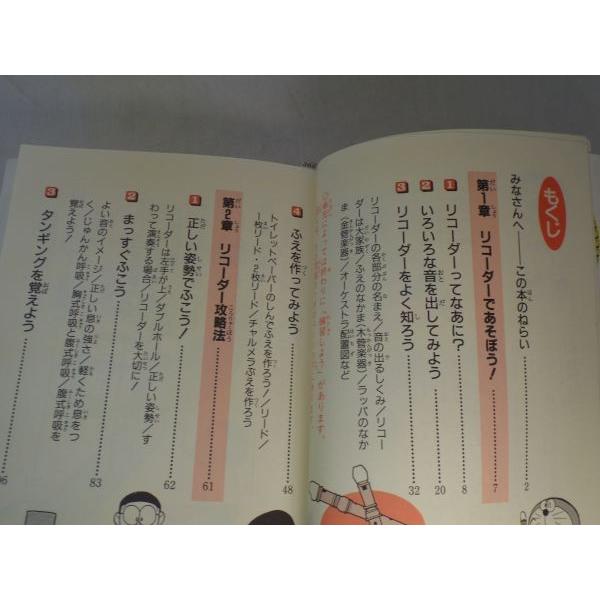 もくじ
みなさんへ――この本のねらい 2
第1章 リコーダーであそぼう! 7
1 リコーダーってなあに? 8
2 いろいろな音を出してみよう 20
3 リコーダーをよく知ろう 32
リコーダーの各部分の名まえ/音の出るしくみ/リコー
ダーは大家族/ふえのなかま〈木管楽器〉/ラッパのなか
ま〈金管楽器〉/オーケストラ配置図など
があります。
4 ふえを作ってみよう 48
トイレットペーパーのしんでふえを作ろう!/リード/
1枚リード・2枚リード/チャルメラぶえを作ろう
第2章 リコーダー攻略法 61
1 正しい姿勢でふこう! 62
リコーダーは左手が上/ダブルホール/正しい姿勢/す
わって演奏する場合/リコーダーを大切に!
2 まっすぐふこう 83
よい音のイメージ/正しい息の強さ/軽くため息をつ
く/じゅんかん呼吸/胸式呼吸と腹式呼吸/腹式呼吸を
覚えよう!
3 タンギングを覚えよう 96